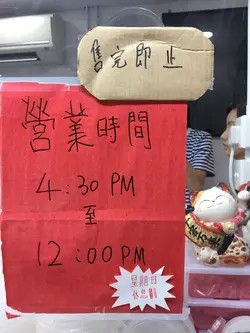 售完即止
營業時間
4:30 PM
至
12:00PM
星期日
休息